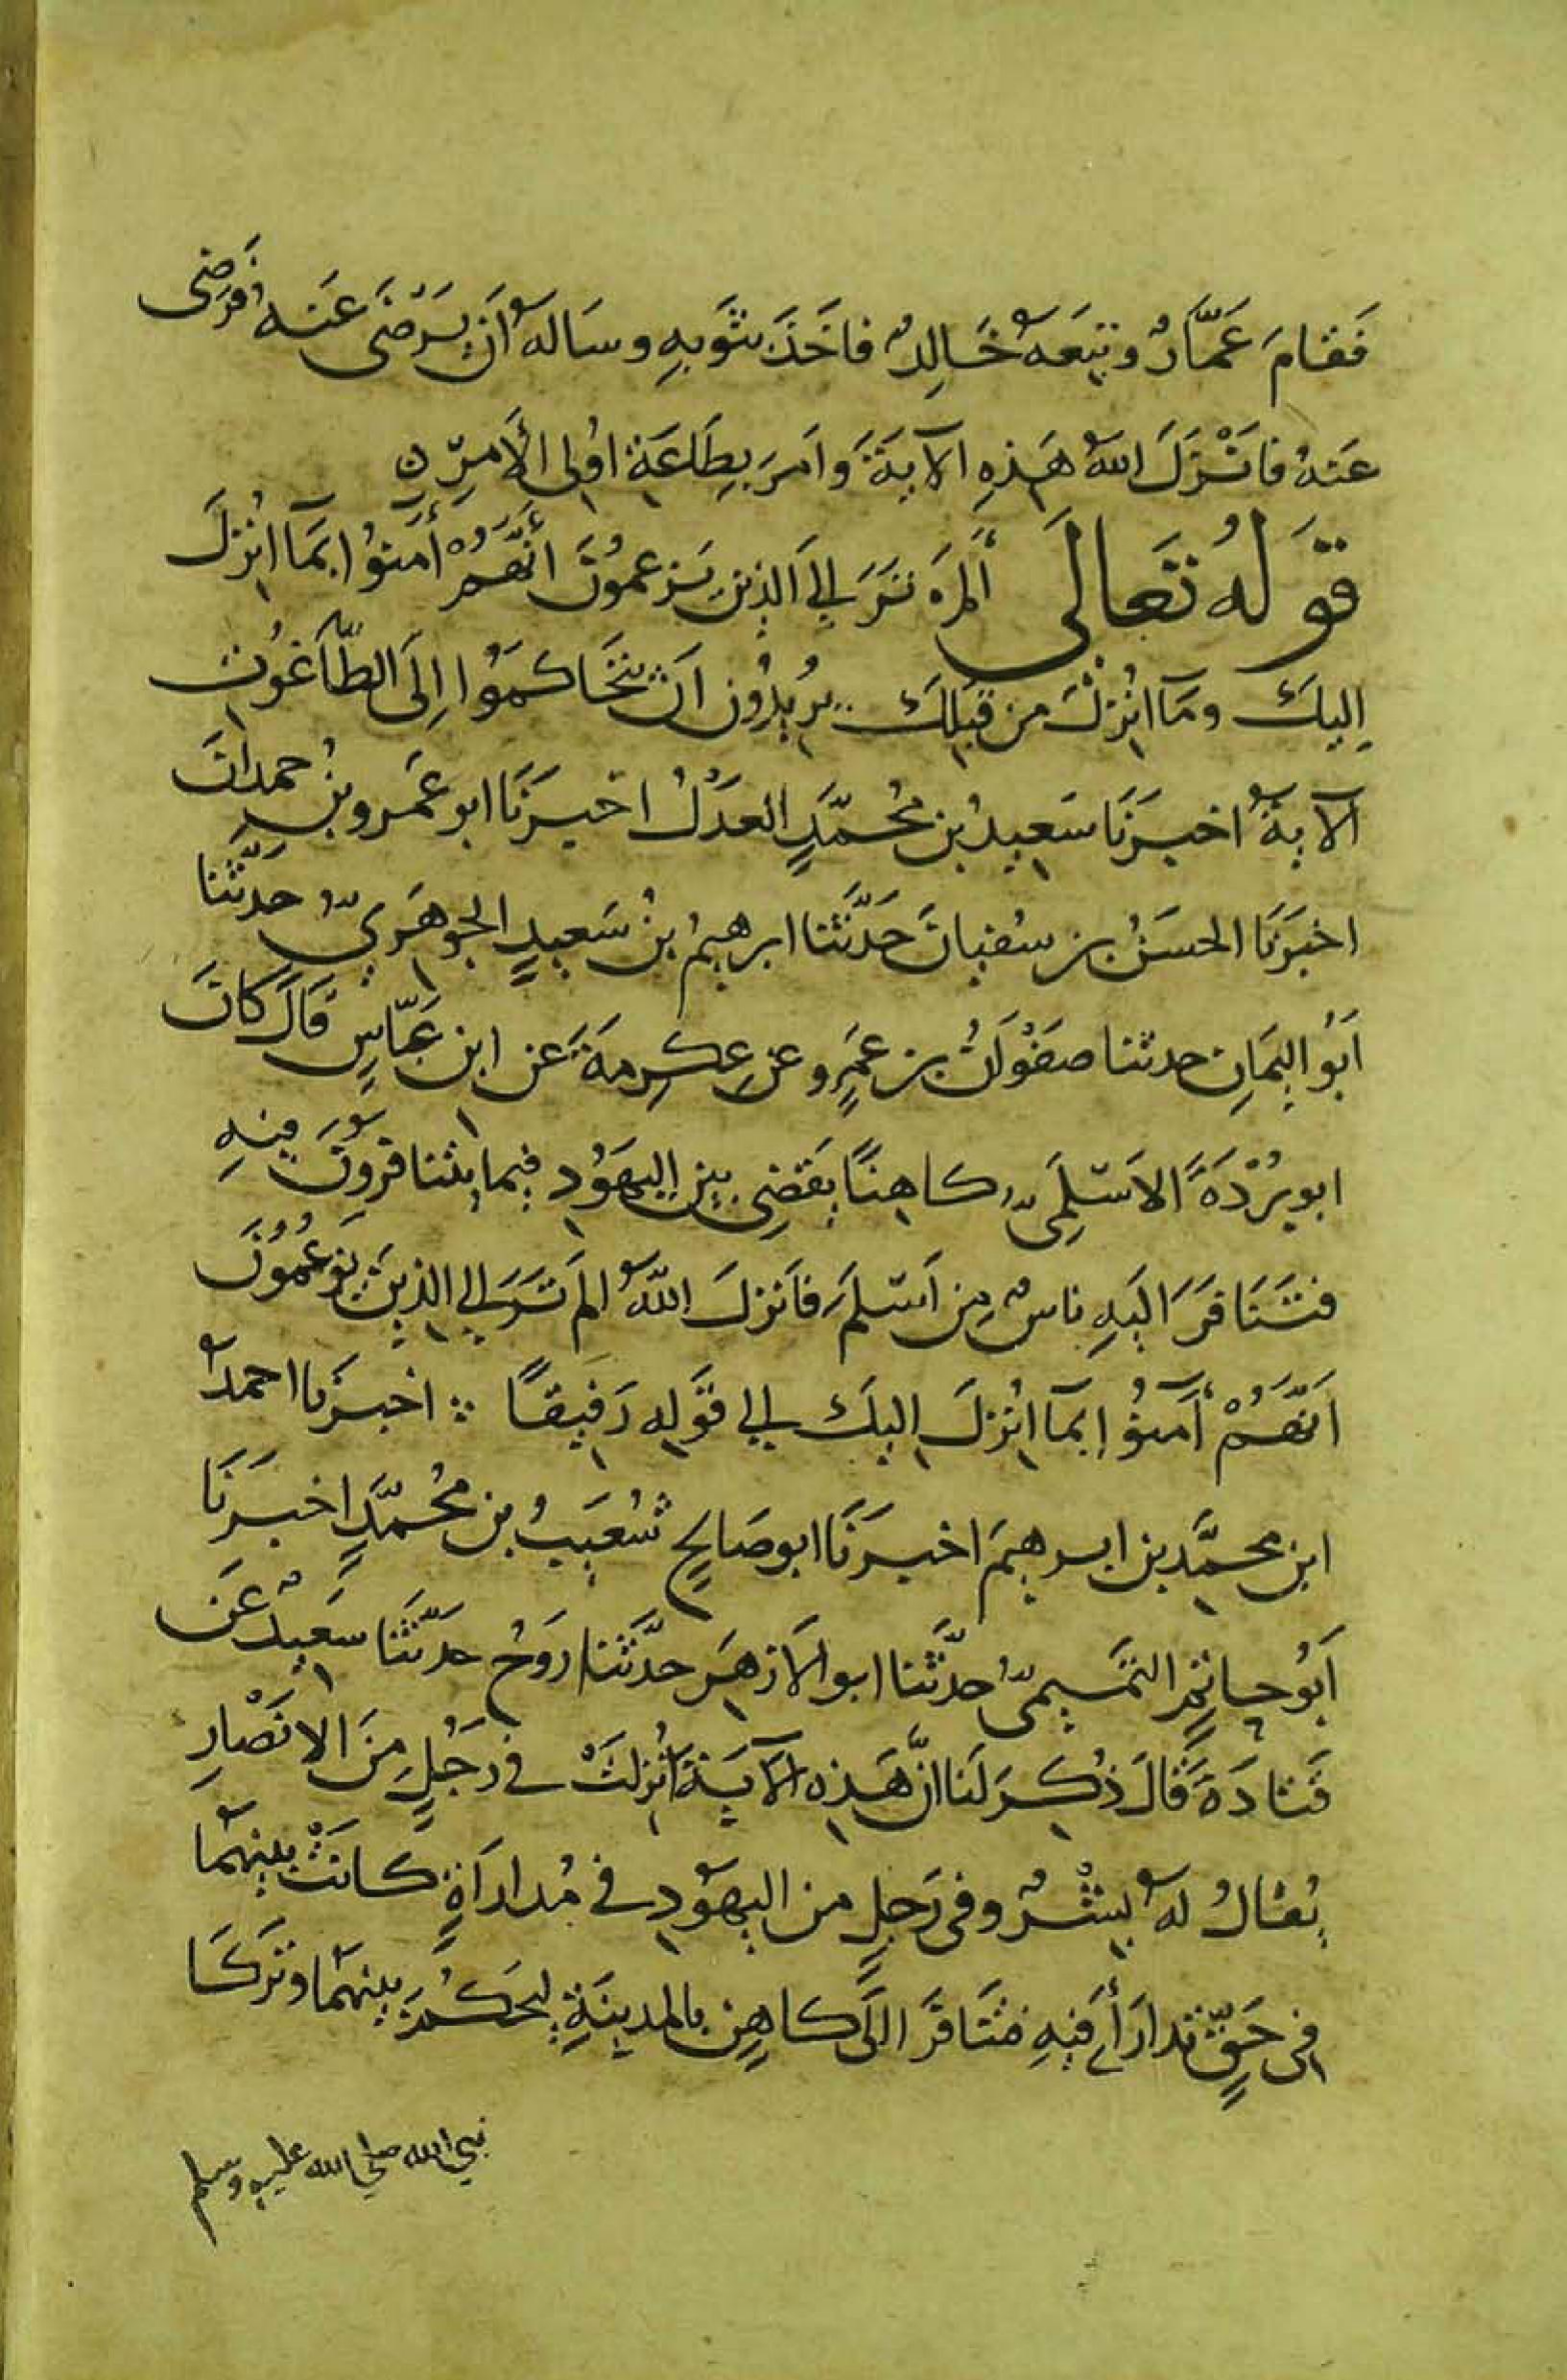 فَقَامَ عَمَّارٌ وتبِعَهُ خَالِدٌ فاخَذَ بثَوبِهِ وسَالهُ اَن يَرْضَى عَنه فَرَضِى
عَنهُ فانْزَلَ اللهُ هَذِهِ الآيَةَ وامَرَ بِطَاعَةِ اوُلِى الاَمرِ
قَولهُ تَعَالَى أَلَمْ تَرَ الى الَّذِينَ يَزعمُونَ أَنَّهُمْ أَمَنُوا بِمَا انُزِلَ
اِليكَ ومَا انُزِلَ من قَبلِكَ يُرِيدُون اَن يَتَحَاكمَوُا اِلَى الطَّاغُوُتِ
الآيةُ اخبرَنَا سَعيدُ بن مُحمَّدٍ العَدْلُ اخبرَنَا ابو عَمرو بنُ حمدانَ
اخبَرَنَا الحسَنُ بن سفيانَ حَدَّثنا ابرهيمُ بنُ سَعيدٍ الجَوهَرِيُّ حَدَّثنا
اَبُو اليَمَانِ حدثنا صَفْوَانُ بن عَمرٍو عن عِكرِمَةَ عَن ابن عَبّاسٍ قَالَ كَانَ
ابو بُرْدَةَ الاَسْلَمِىُّ كاهِنًا يَقضِى بين اليَهوُد فيما يتنافرُونَ فيهِ
فتَنَافَرَ اليَهِ ناسٌ مِن اَسْلَمَ فاَنزلَ اللّهُ الَم تَرَ الى الذِينَ يَزعُمُونَ
اَنَّهُمْ أَمَنُوُا بمآ انُزلَ اليكَ الى قَولِهِ رَفيقًا اخبرَنا احمدُ
ابن محمَّد بن ابرهيمَ اخبرَنَا ابو صَالحٍ شُعَيبُ بن مُحمّدٍ اخبرَنَا
اَبُو حاتمٍ التّمَيمىُّ حدَّثنا ابو الاَزهَر حدَّثنا رَوحُ حدَّثنا سَعيدٌ عَن
قَتادَةَ قَالَ ذُكِرَ لَنا انَّ هَذِهِ الآيَةَ انُزلَتْ فى رَجُلٍ مِنَ الانصَارِ
يُقالُ لهُ بِشْرٌ وفى رَجلٍ من اليهوُدِ فى مُدارَاةٍ كانَتْ بينهُما
فِى حَقٍّ تدارَأَا فيهِ فتَنافَرَا اِلَى كاهِنٍ بالمدينَةِ ليَحكُمَ بينهُمَا وتَركَا
نبي الله صلى الله عليه وسلم